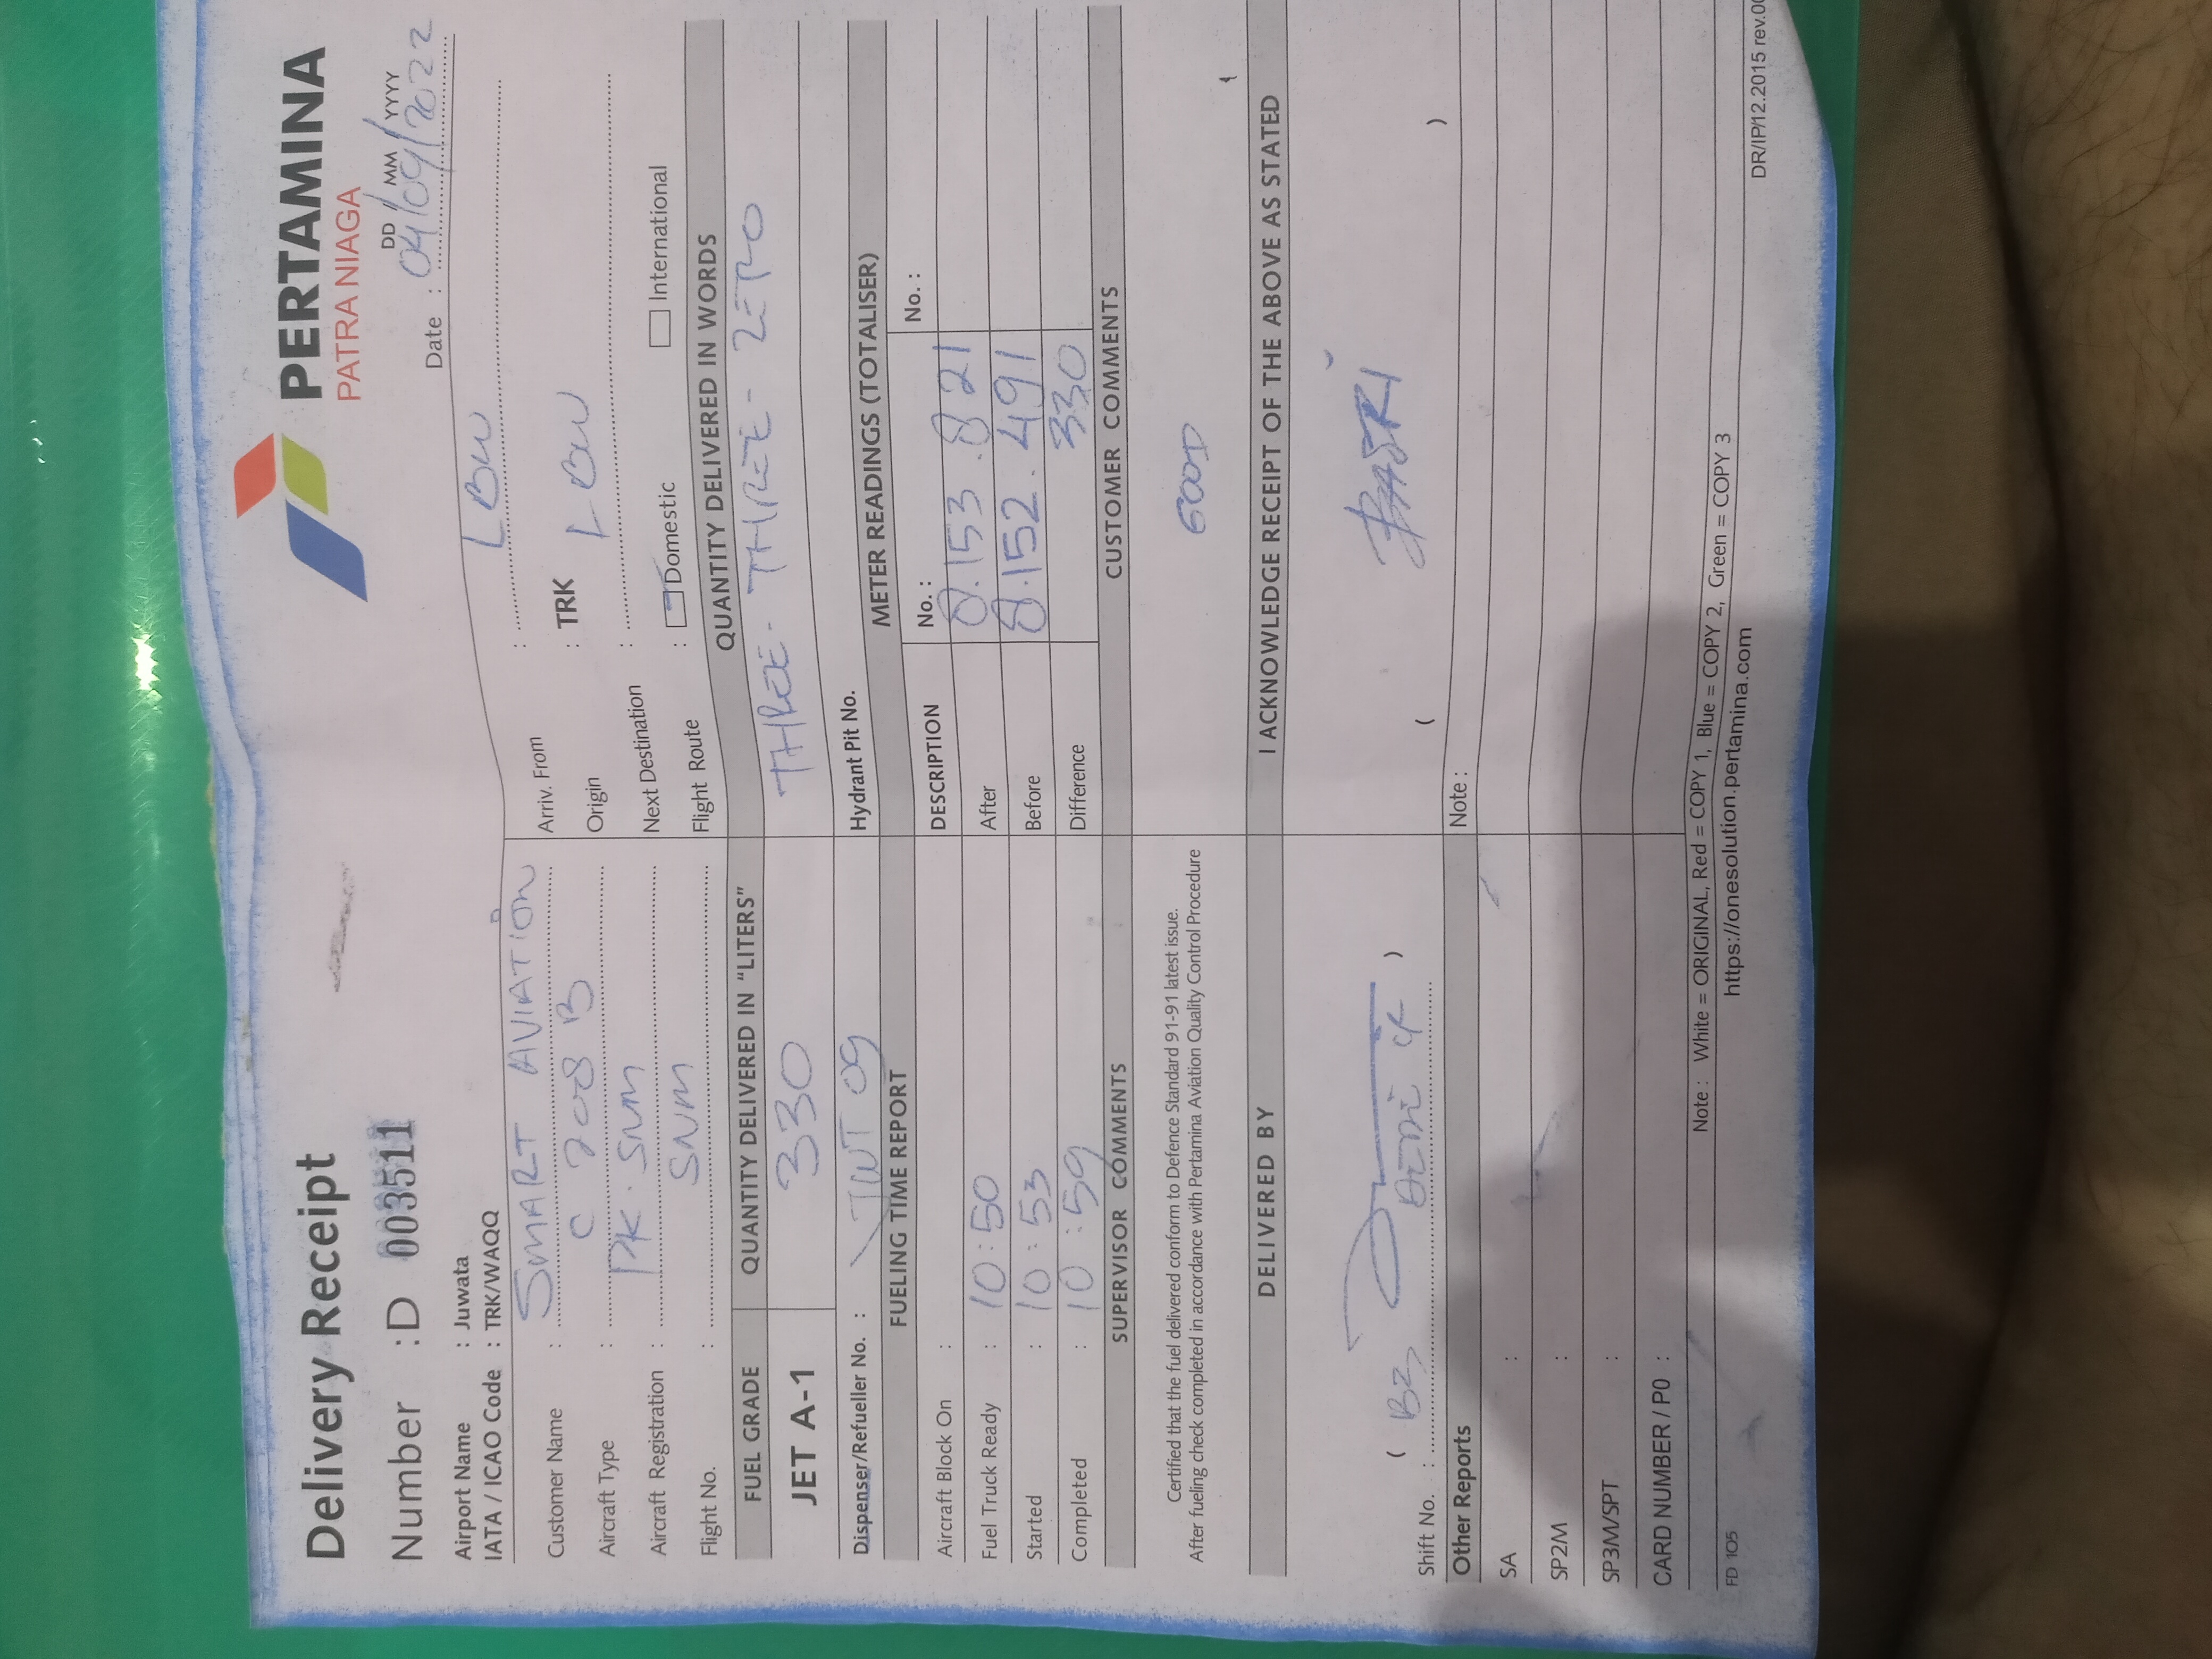 Delivery Receipt
PERTAMINA
PATRA NIAGA
Number : D 003511
DD MM YYYY
Date : 04/09/2022
Airport Name : Juwata
IATA / ICAO Code : TRK/WAQQ
Customer Name : SMART AVIATION
Aircraft Type : C 208 B
Aircraft Registration : PK. SNM
Flight No. : SNM
Arriv. From : LBW
Origin : TRK
Next Destination : LBW
Flight Route : Domestic International
FUEL GRADE
QUANTITY DELIVERED IN "LITERS"
QUANTITY DELIVERED IN WORDS
JET A-1
330
THREE - THREE - ZERO
Dispenser/Refueller No. : TWT 09
Hydrant Pit No.
FUELING TIME REPORT
METER READINGS (TOTALISER)
Aircraft Block On :
DESCRIPTION No. : No. :
Fuel Truck Ready : 10:50
After 8.153.821
Started : 10:53
Before 8.152.491
Completed : 10:59
Difference 330
SUPERVISOR COMMENTS
CUSTOMER COMMENTS
Certified that the fuel delivered conform to Defence Standard 91-91 latest issue.
After fueling check completed in accordance with Pertamina Aviation Quality Control Procedure
GOOD
DELIVERED BY
I ACKNOWLEDGE RECEIPT OF THE ABOVE AS STATED
( B2, )
( )
Shift No. :
Other Reports
Note :
SA :
SP2M :
SP3M/SPT :
CARD NUMBER / P0 :
Note : White = ORIGINAL, Red = COPY 1, Blue = COPY 2, Green = COPY 3
FD 105
https://onesolution.pertamina.com
DR/IP/12.2015 rev.00